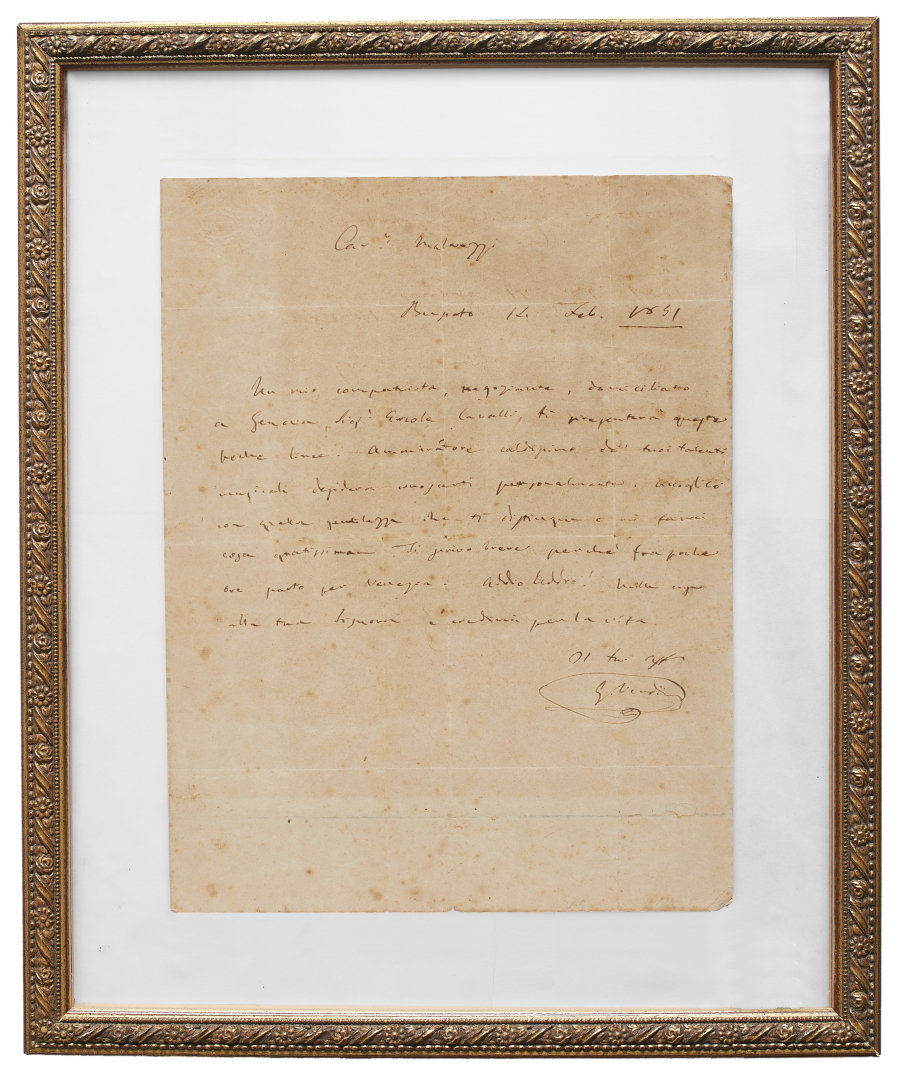 Car.º Malvezzi
Busseto 14 Feb. 1851
Un mio compatriota, negoziante, domiciliato
a Genova, Sigr Ercole Cavalli, ti presenterà queste
poche linee. Ammiratore caldissimo de' tuoi talenti
musicali desidera conoscerti personalmente. Accoglilo
con quella gentilezza che ti distingue e mi farai
cosa gratissima. Ti scrivo breve perché fra poche
ore parto per Venezia. Addio Addio! Mille cose
alla tua Signora e credimi per la vita
Il tuo aff
G. Verdi